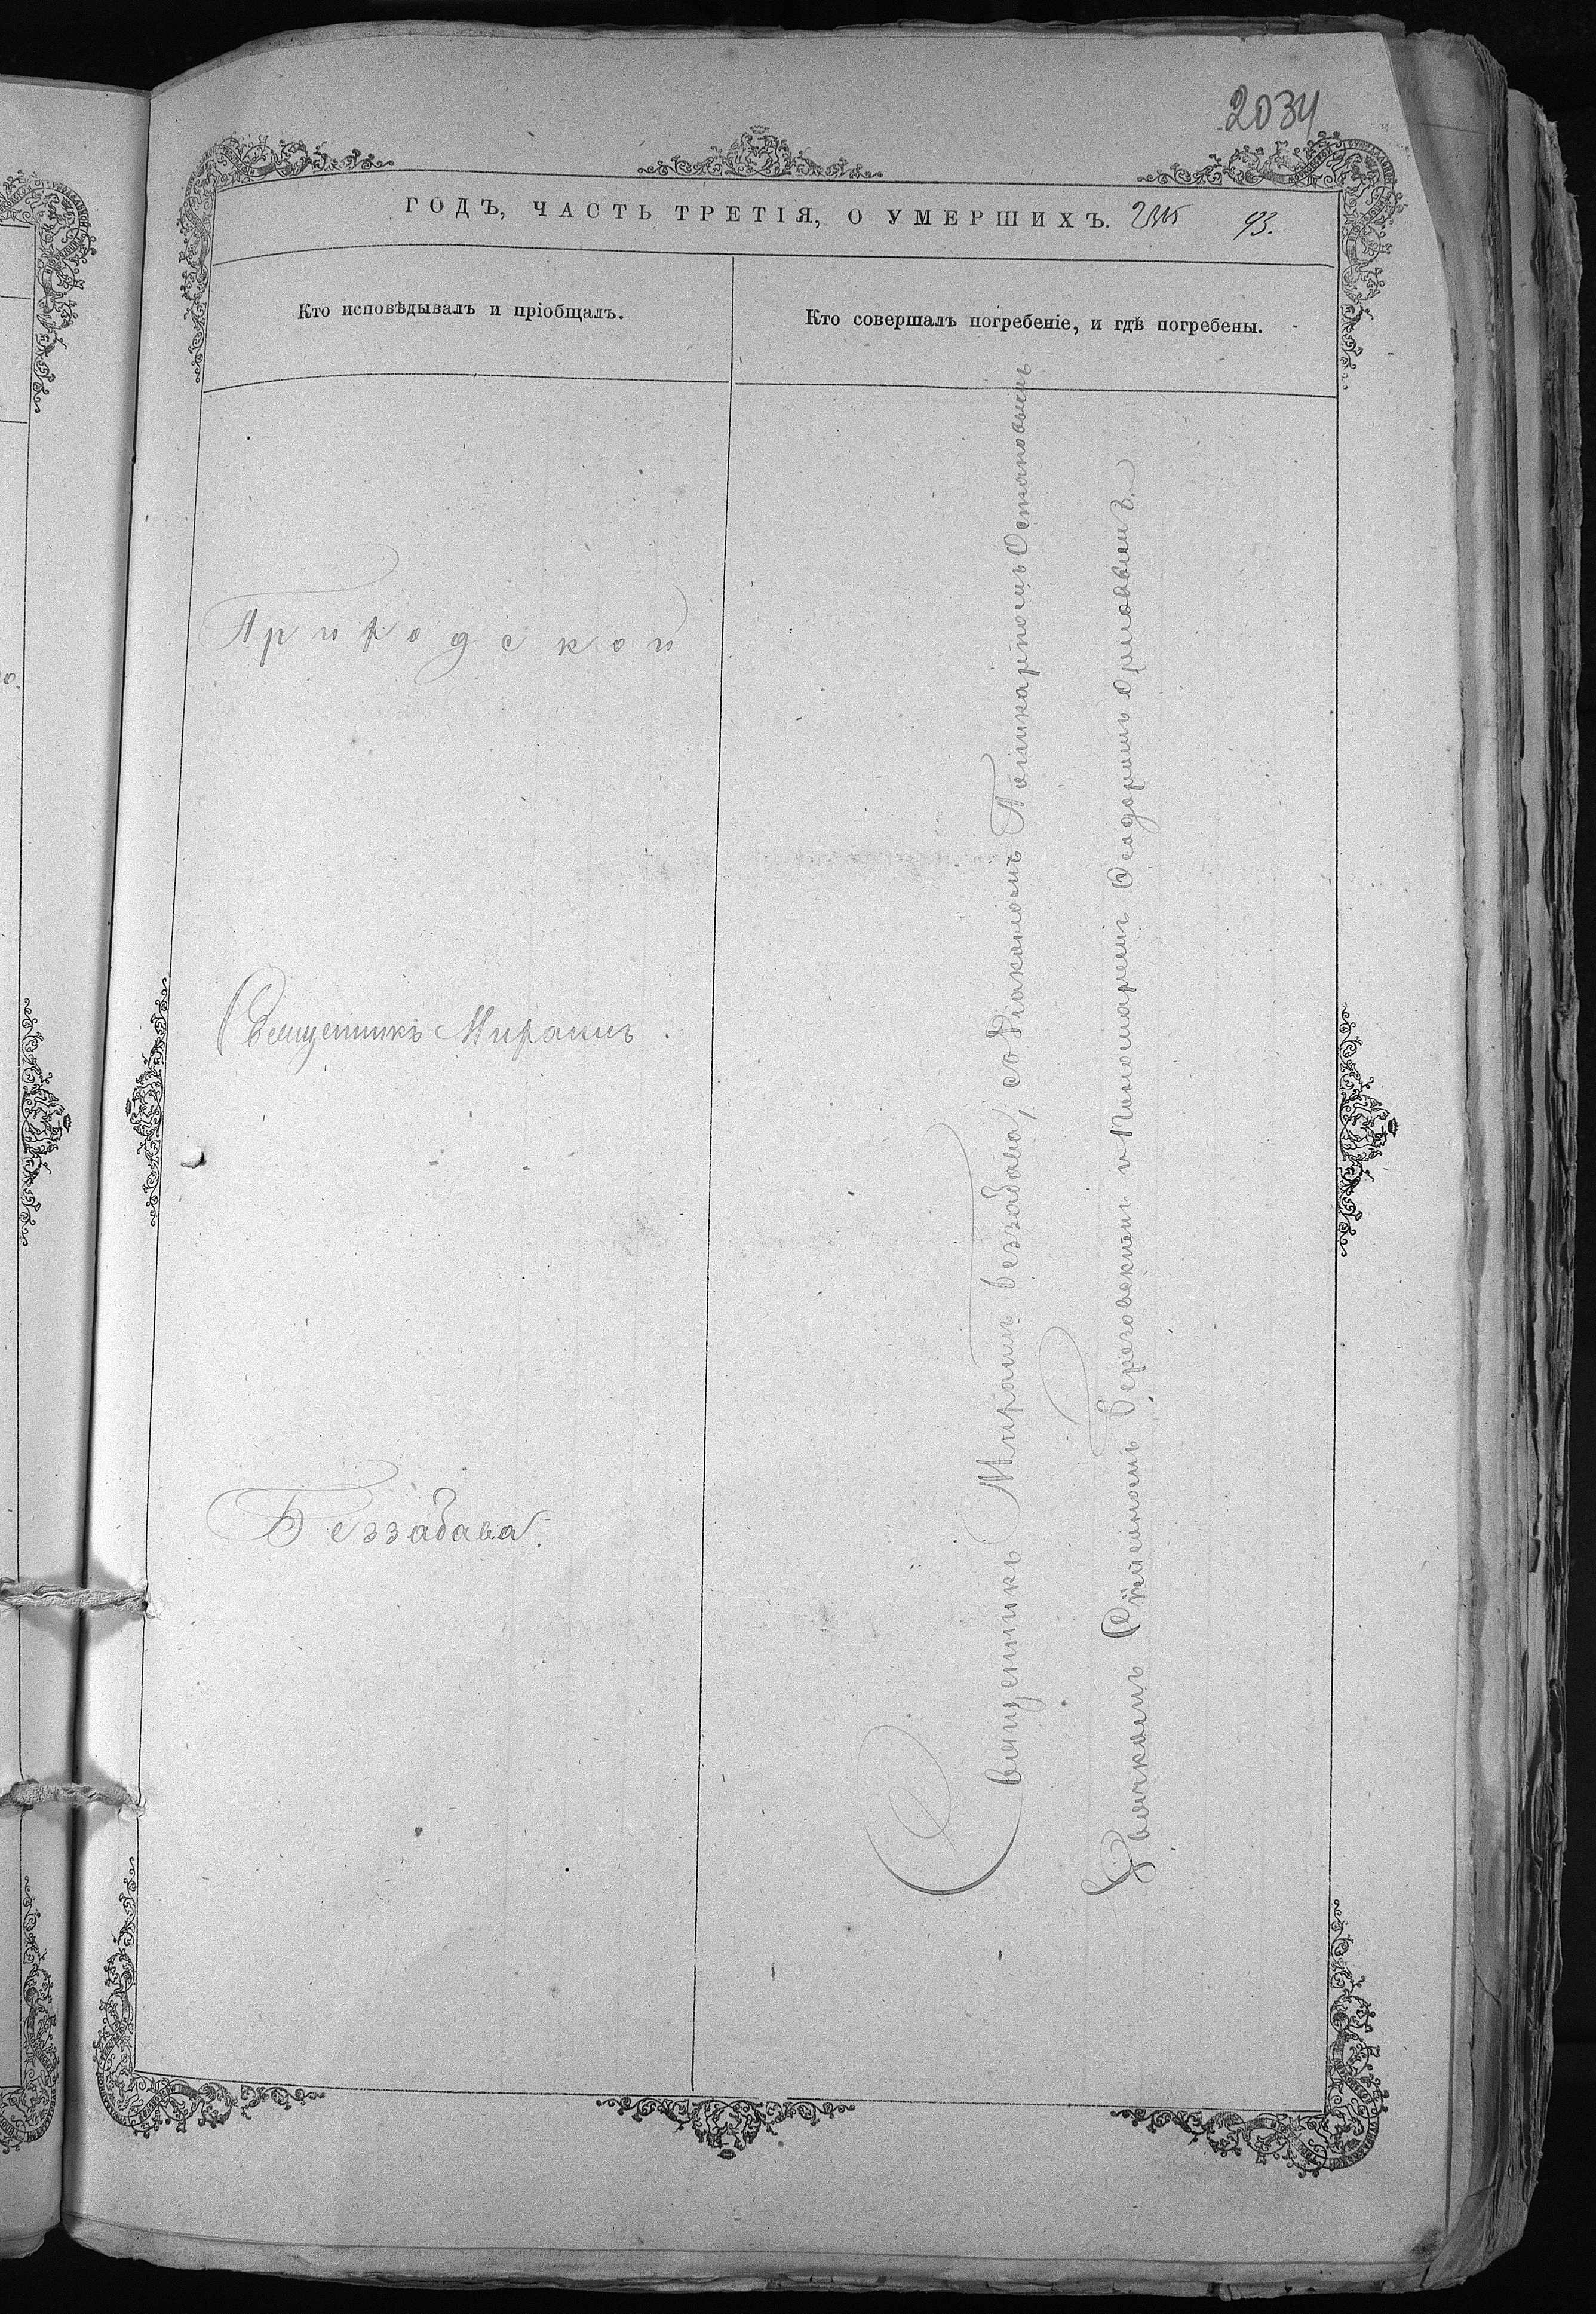 2034
ГОДЪ, ЧАСТЬ ТРЕТІЯ, О УМЕРШИХЪ.
93.
Кто исповѣдывалъ и пріобщалъ.
Кто совершалъ погребеніе, и гдѣ погребены.
Приходской
Священникъ Миронъ
Беззабава.
Священникъ Миронъ Беззабава, съ Діакономъ Поликарпомъ Остаповымъ
Дьячкомъ Симеономъ Березовскимъ и Пономаремъ Ѳеодоромъ Орловымъ.